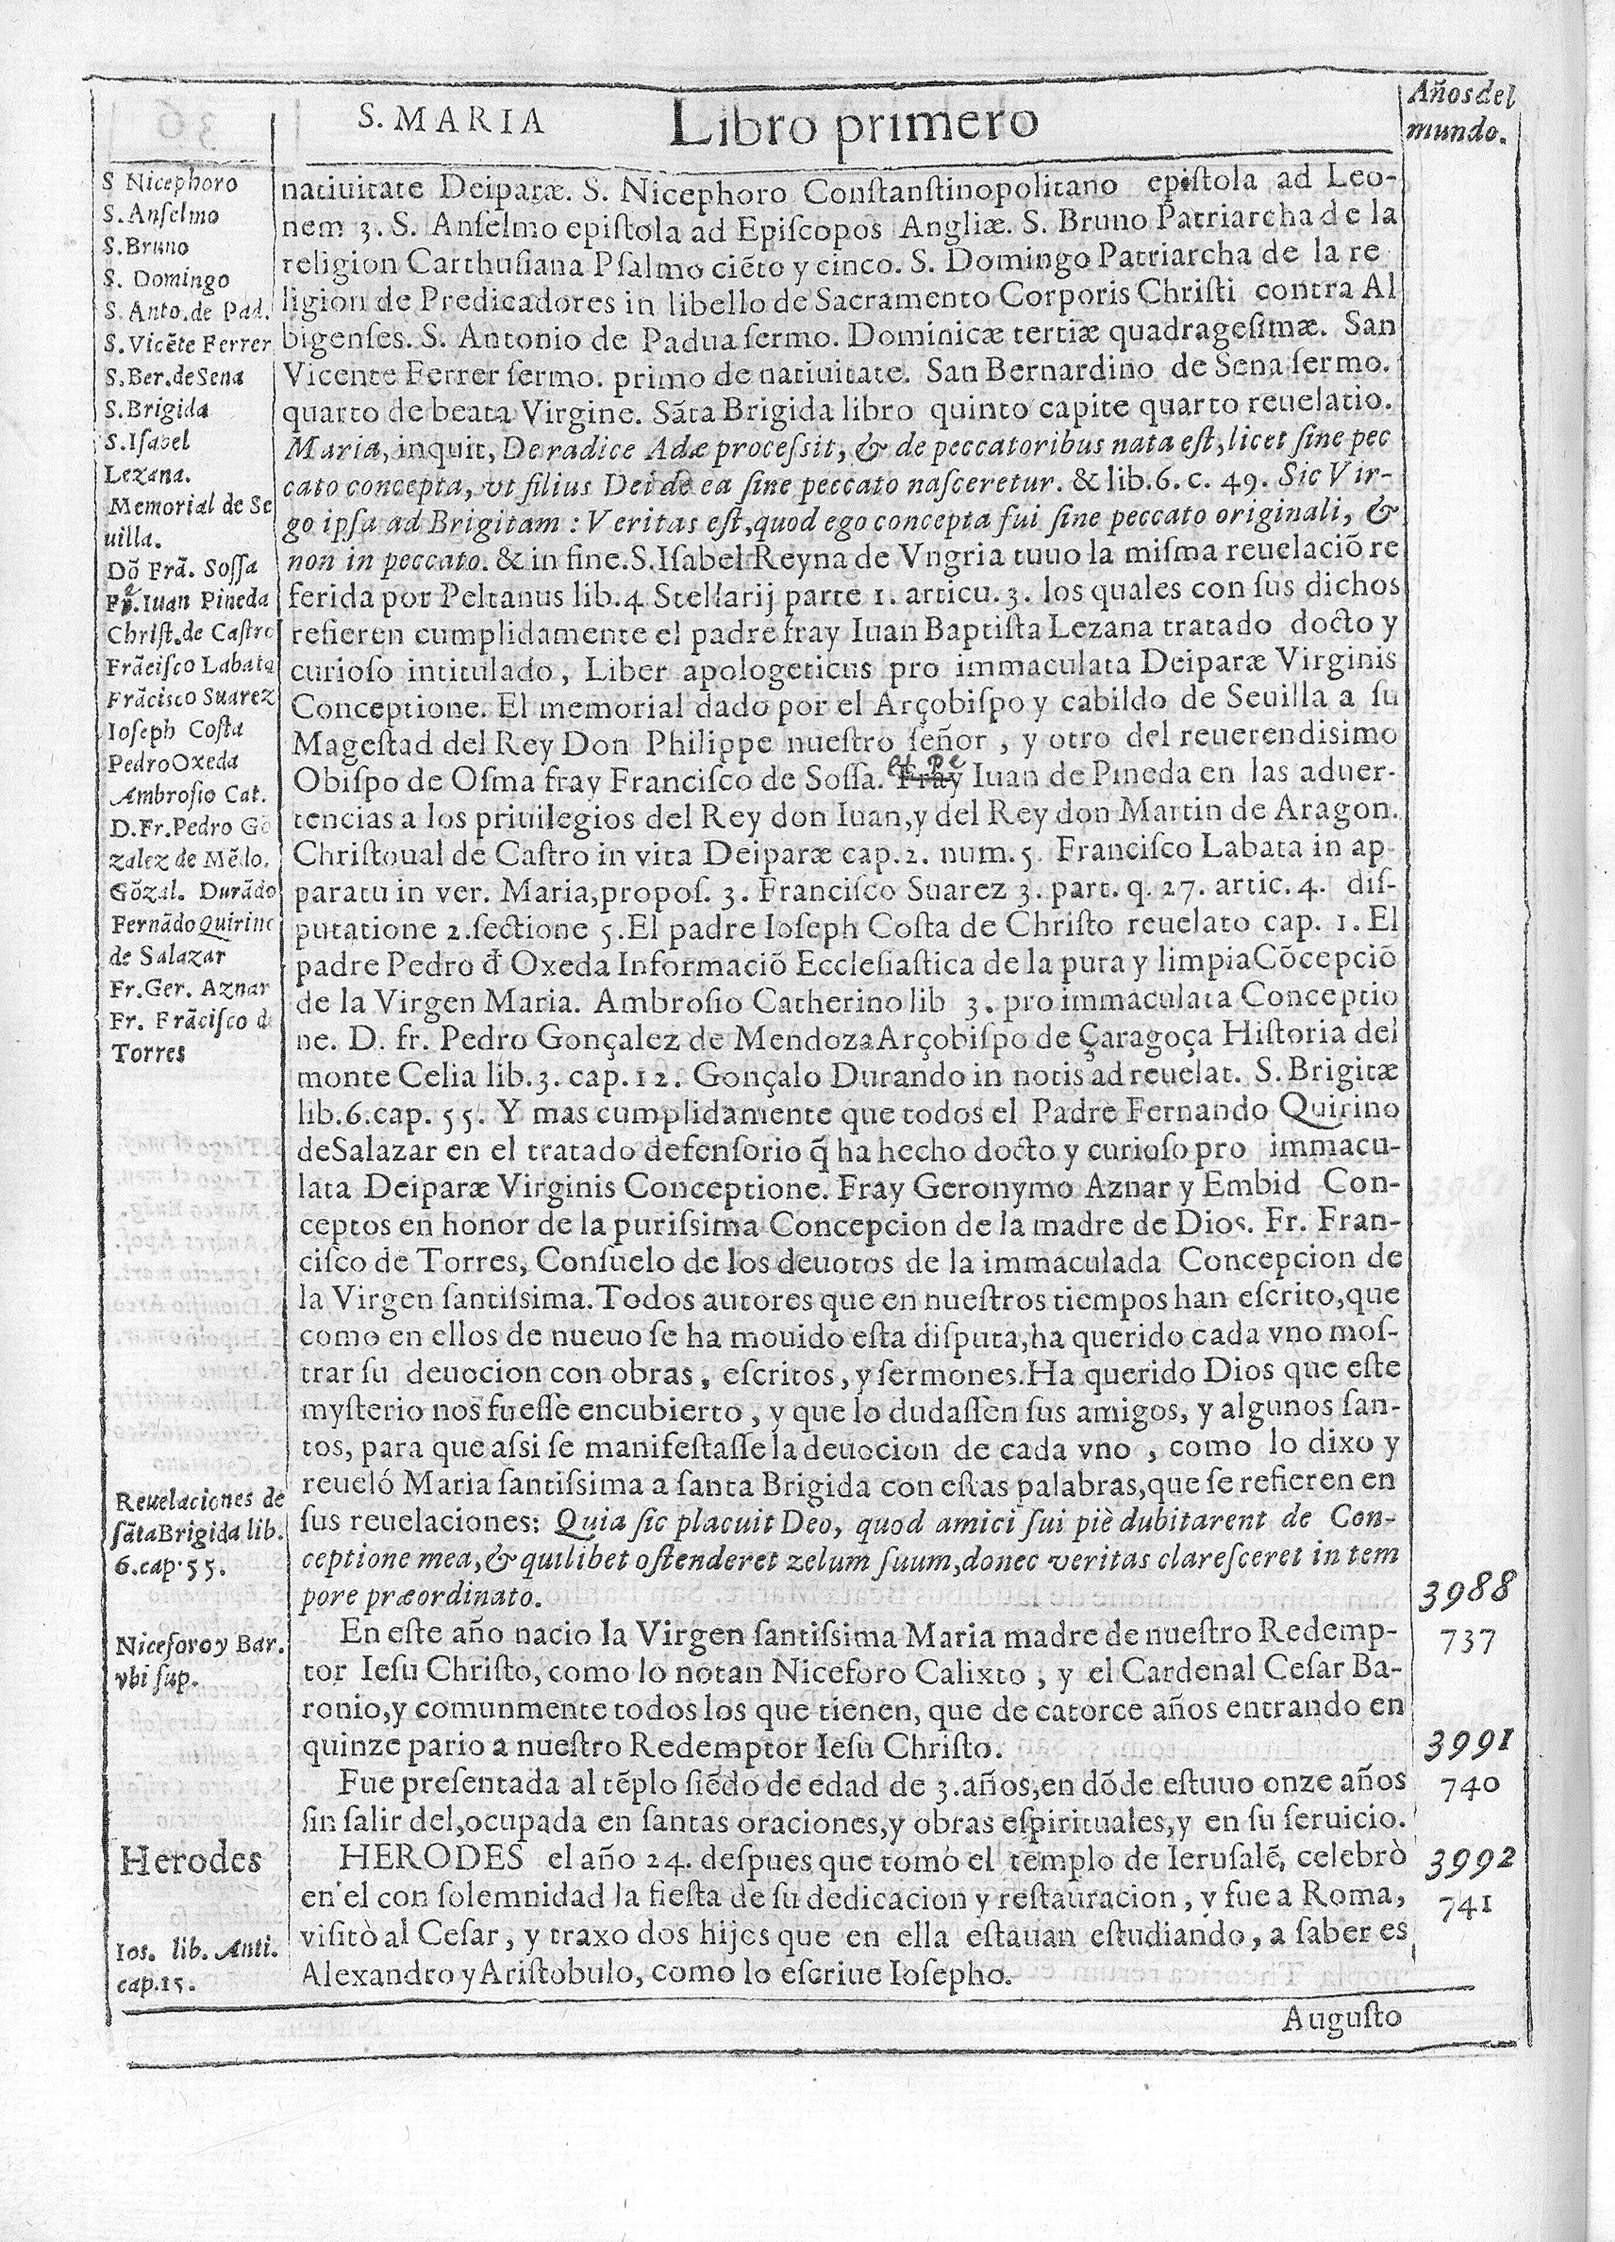 S. MARIA Libro primero
Años del
mundo.
S Nicephoro
S. Anſelmo
S. Bruno
S. Domingo
S. Anto. de Pad.
S. Vicẽte Ferrer
S. Ber. de Sena
S. Brigida
S. Iſabel
Lezana.
Memorial de Se
uilla.
Dõ Frã. Soſſa
Iuan Pineda
Chriſt. de Caſtro
Frãciſco Labata
Frãcisco Suarez
Ioſeph Coſta
Pedro Oxeda
Ambroſio Cat.
D. Fr. Pedro Gõ
zalez de Mẽdo.
Gõzal. Durãdo
Fernãdo Quirino
de Salazar
Fr. Ger. Aznar
Fr. Frãciſco de
Torres
natiuitate Deiparæ. S. Nicephoro Conſtanſtinopolitano epiſtola ad Leo-
nem 3. S. Anſelmo epiſtola ad Epiſcopos Angliæ. S. Bruno Patriarcha de la
religion Carthuſiana Pſalmo ciẽto y cinco. S. Domingo Patriarcha de la re
ligion de Predicadores in libello de Sacramento Corporis Chriſti contra Al
bigenſes. S. Antonio de Padua ſermo. Dominicæ tertiæ quadrageſimæ. San
Vicente Ferrer ſermo. primo de natiuitate. San Bernardino de Sena ſermo.
quarto de beata Virgine. Sãta Brigida libro quinto capite quarto reuelatio.
Maria, inquit, De radice Adæ proceſsit, & de peccatoribus nata eſt, licet ſine pec
cato concepta, vt filius Dei de ea ſine peccato naſceretur. & lib. 6. c. 49. Sic Vir-
go ipſa ad Brigitam : Veritas eſt, quod ego concepta fui ſine peccato originali, &
non in peccato. & in fine. S. Iſabel Reyna de Vngria tuuo la miſma reuelaciõ re
ferida por Peltanus lib. 4 Stellarij parte 1. articu. 3. los quales con ſus dichos
refieren cumplidamente el padre fray Iuan Baptiſta Lezana tratado docto y
curioſo intitulado, Liber apologeticus pro immaculata Deiparæ Virginis
Conceptione. El memorial dado por el Arçobiſpo y cabildo de Seuilla a ſu
Mageſtad del Rey Don Philippe nueſtro ſeñor, y otro del reuerendisimo
Obiſpo de Oſma fray Franciſco de Soſſa. Fray el Pe Iuan de Pineda en las aduer-
tencias a los priuilegios del Rey don Iuan, y del Rey don Martin de Aragon.
Chriſtoual de Caſtro in vita Deiparæ cap. 2. num. 5. Franciſco Labata in ap
paratu in ver. Maria, propoſ. 3. Franciſco Suarez 3. part. q. 27. artic. 4. diſ-
putatione 2. ſectione 5. El padre Ioſeph Coſta de Chriſto reuelato cap. 1. El
padre Pedro đ Oxeda Informaciõ Eccleſiaſtica de la pura y limpia Cõcepciõ
de la Virgen Maria. Ambroſio Catherino lib 3. pro immaculata Conceptio
ne. D. fr. Pedro Gonçalez de Mendoza Arçobiſpo de Çaragoça Hiſtoria del
monte Celia lib. 3. cap. 12. Gonçalo Durando in notis ad reuelat. S. Brigitæ
lib. 6. cap. 55. Y mas cumplidamente que todos el Padre Fernando Quirino
de Salazar en el tratado defenſorio q̃ ha hecho docto y curioſo pro immacu-
lata Deiparæ Virginis Conceptione. Fray Geronymo Aznar y Embid Con-
ceptos en honor de la puriſsima Concepcion de la madre de Dios. Fr. Fran-
ciſco de Torres, Conſuelo de los deuotos de la immaculada Concepcion de
la Virgen ſantiſsima. Todos autores que en nueſtros tiempos han eſcrito, que
como en ellos de nueuo ſe ha mouido eſta diſputa, ha querido cada vno moſ-
trar ſu deuocion con obras, eſcritos, y ſermones. Ha querido Dios que eſte
myſterio nos fueſſe encubierto, y que lo dudaſſen ſus amigos, y algunos ſan-
tos, para que aſsi ſe manifeſtaſſe la deuocion de cada vno, como lo dixo y
reueló Maria ſantiſsima a ſanta Brigida con eſtas palabras, que ſe refieren en
ſus reuelaciones: Quia ſic placuit Deo, quod amici ſui piè dubitarent de Con-
ceptione mea, & quilibet oſtenderet zelum ſuum, donec veritas clareſceret in tem
pore præordinato.
Reuelaciones de
ſãta Brigida lib.
6. cap. 55.
En eſte año nacio la Virgen ſantiſsima Maria madre de nueſtro Redemp-
tor Ieſu Chriſto, como lo notan Niceforo Calixto, y el Cardenal Ceſar Ba-
ronio, y comunmente todos los que tienen, que de catorce años entrando en
quinze pario a nueſtro Redemptor Ieſu Chriſto.
Niceforo y Bar.
vbi ſup.
3988
737
Fue preſentada al tẽplo ſiẽdo de edad de 3. años, en dõde eſtuuo onze años
ſin ſalir del, ocupada en ſantas oraciones, y obras eſpirituales, y en ſu ſeruicio.
3991
740
HERODES el año 24. deſpues que tomò el templo de Ieruſalẽ, celebrò
en el con ſolemnidad la fieſta de ſu dedicacion y reſtauracion, y fue a Roma,
viſitò al Ceſar, y traxo dos hijos que en ella eſtauan eſtudiando, a ſaber es
Alexandro y Ariſtobulo, como lo eſcriue Ioſepho.
Herodes
Ios. lib. Anti.
cap. 15.
3992
741
Auguſto